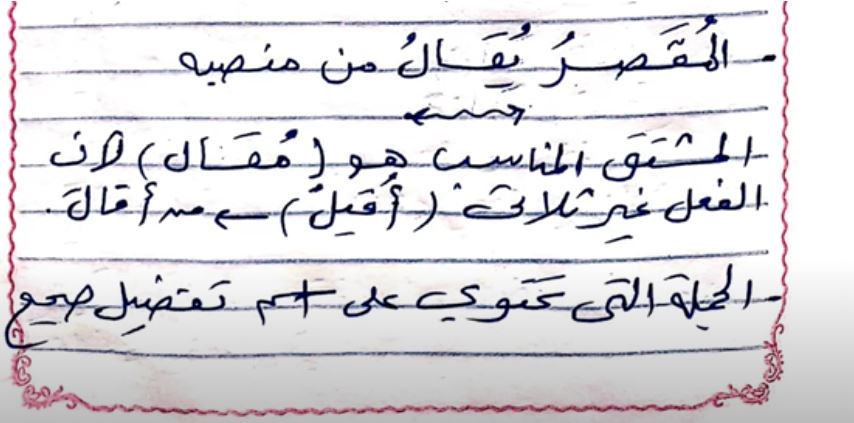 - المُقَصِرُ يُقَالُ من منصبه
المشتق المناسب هو (مُقَال) لأن
الفعل غير ثلاثى (أُقيلَ) ← من أقالَ.
- الجملة التى تحتوي على اسم تفضيل صحيح